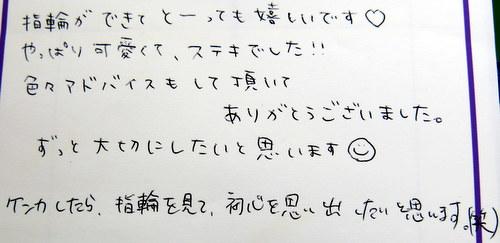 指輪ができてとーっても嬉しいです♡
やっぱり可愛くて、ステキでした!!
色々アドバイスもして頂いて
ありがとうございました。
ずっと大切にしたいと思います☺
ケンカしたら、指輪を見て、初心を思い出したいと思います。(笑)